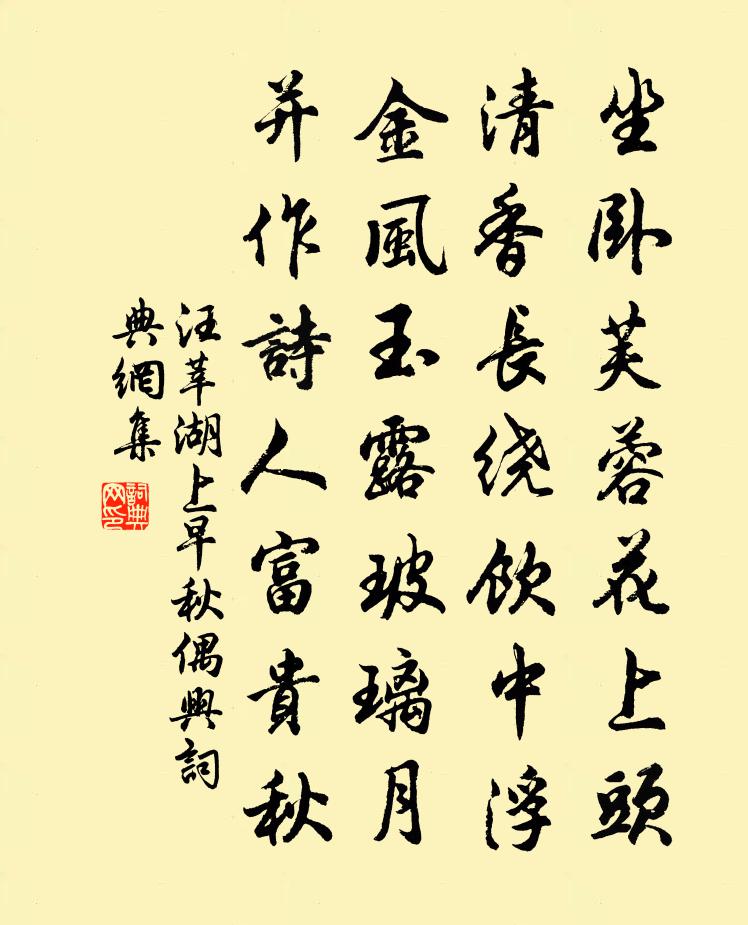 坐卧芙蓉花上頭
清香長绕飲中浮
金風玉露玻璃月
并作詩人富貴秋
汪莘湖上早秋偶興詞
典網集
詞典网印